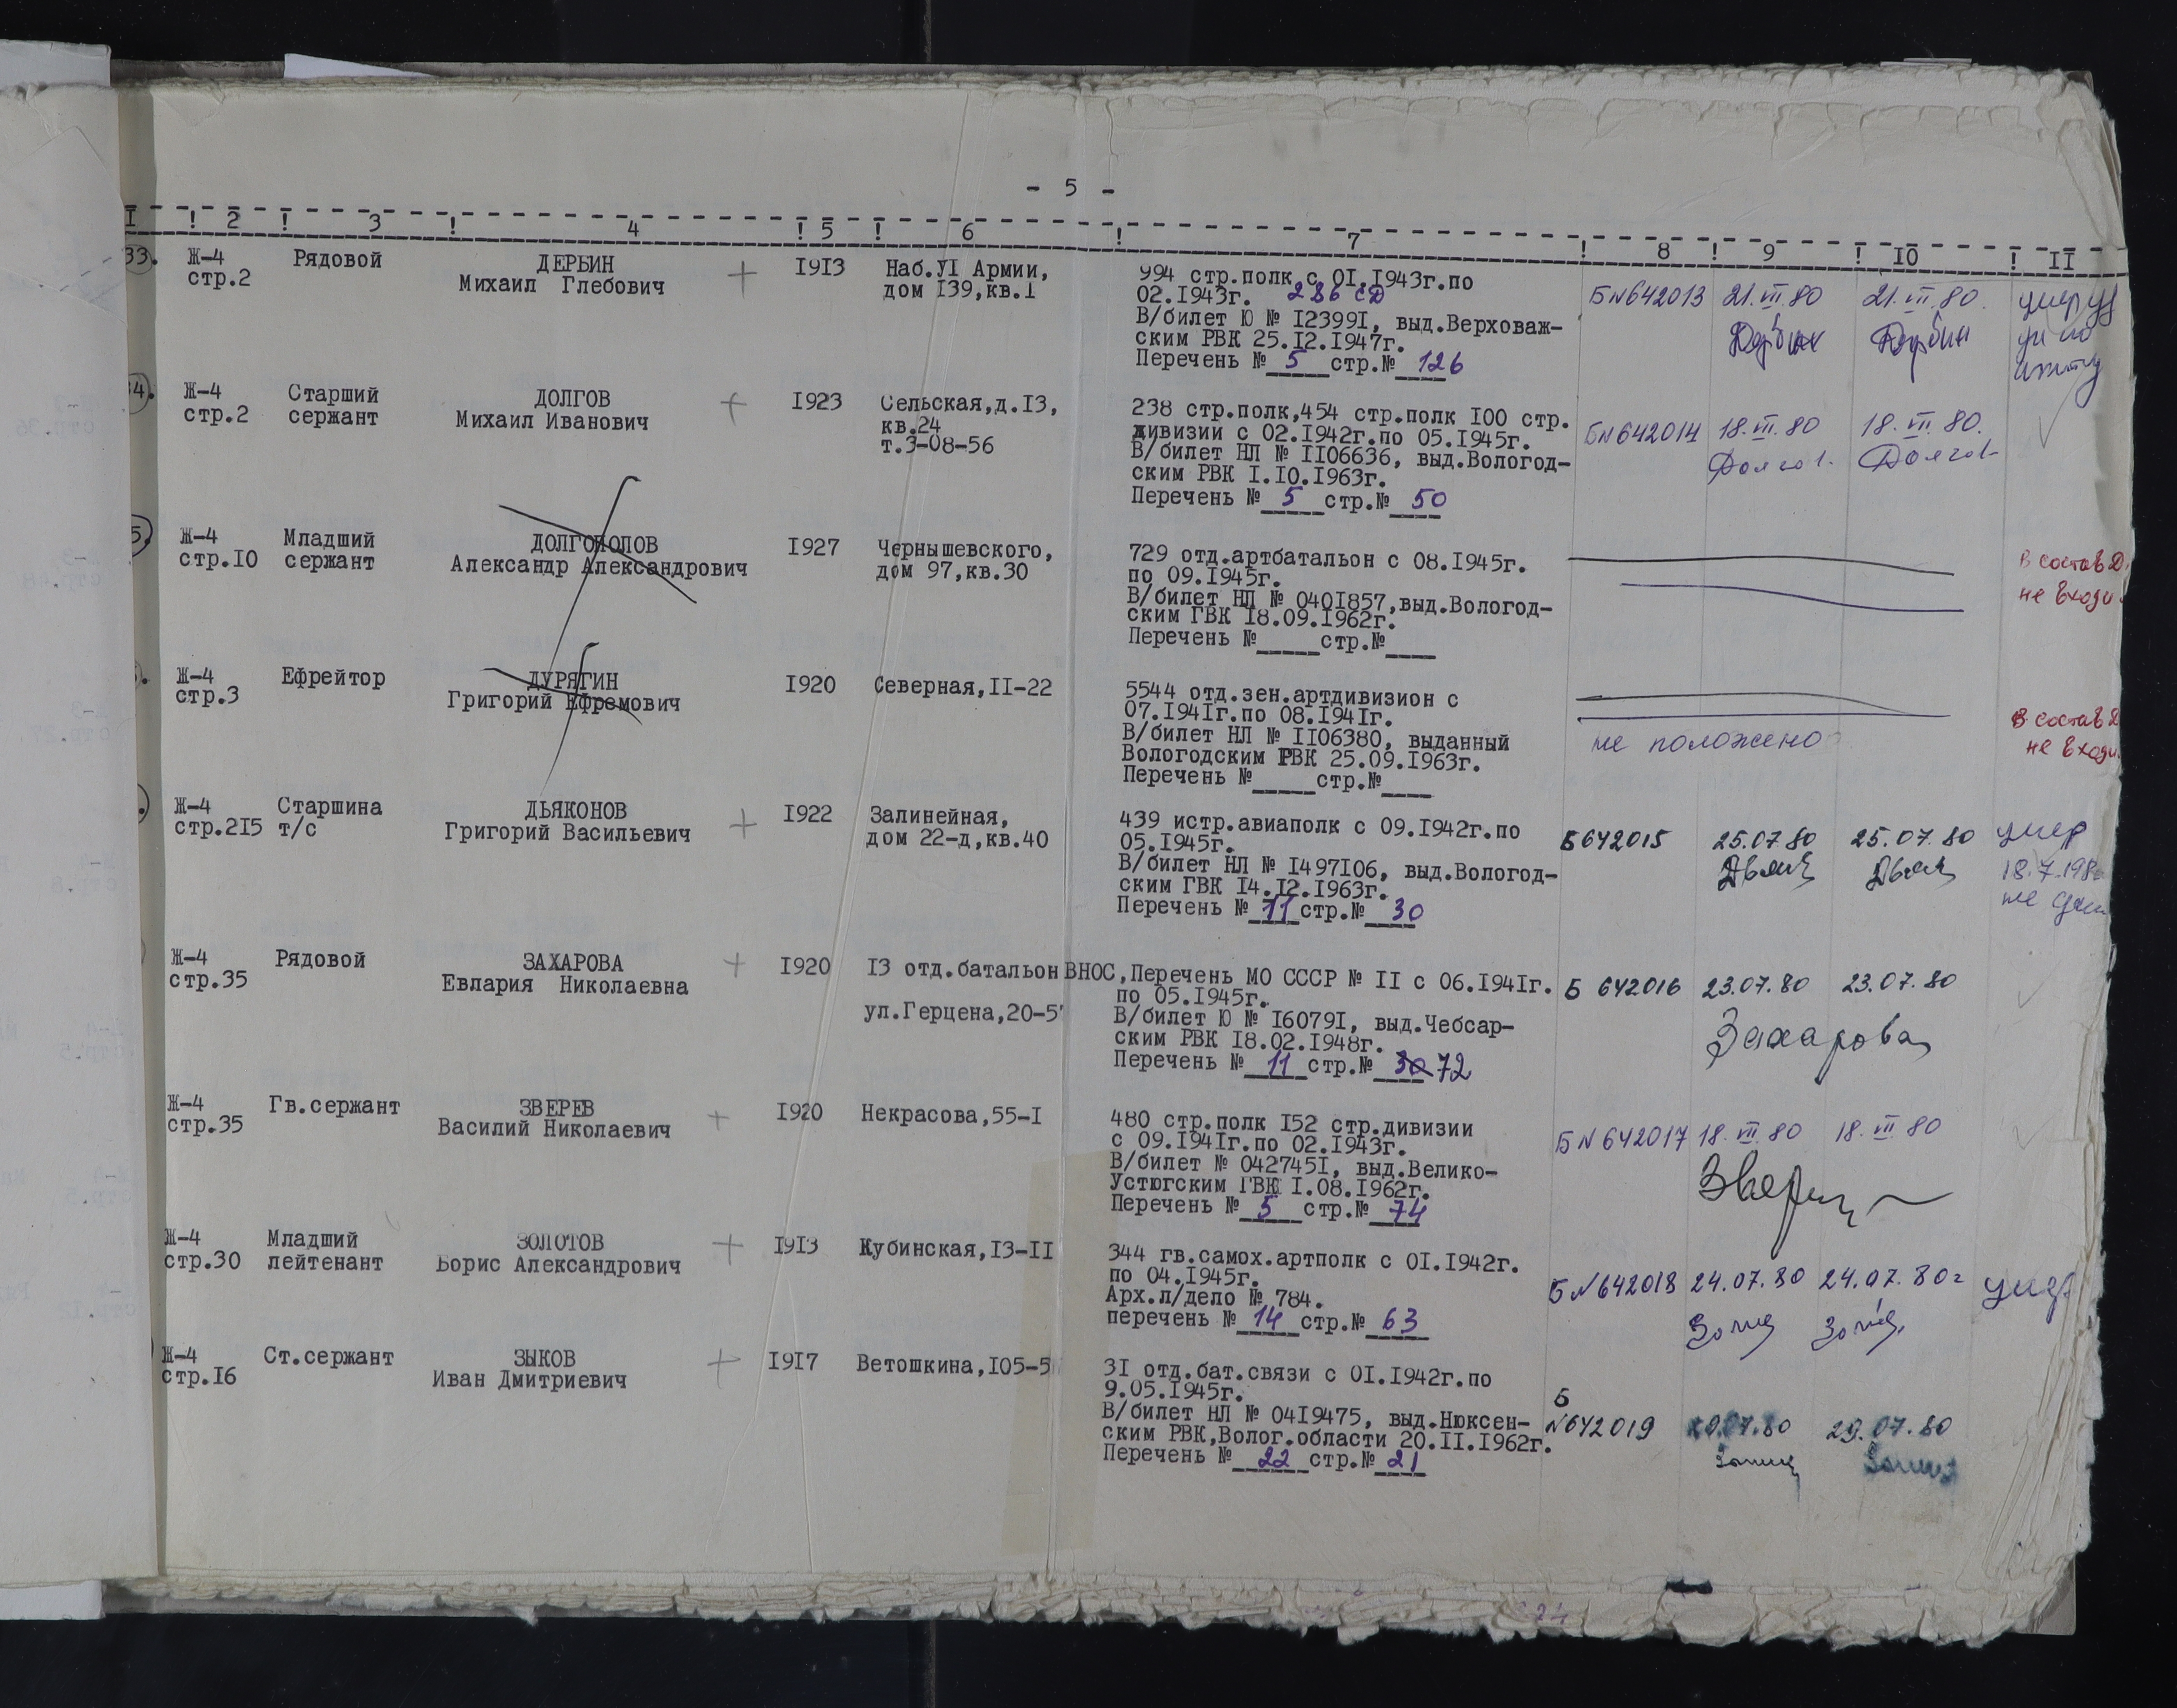 - 5 -
I ! 2 ! 3 ! 4 ! 5 ! 6 ! 7 ! 8 ! 9 ! 10 ! II
33. Ж-4 Рядовой ДЕРБИН + 1913 Наб.УI Армии, 994 стр.полк с 01.1943г.по БN642013 21.VII.80 21.VII.80. умер
стр.2 Михаил Глебович дом 139,кв.1 02.1943г. 286 сд
В/билет Ю № 123991, выд.Верховаж- Дербин Дербин
ским РВК 25.12.1947г.
Перечень № 5 стр.№ 126
34. Ж-4 Старший ДОЛГОВ + 1923 Сельская,д.13, 238 стр.полк,454 стр.полк 100 стр. БN642014 18.VII.80 18.VII.80.
стр.2 сержант Михаил Иванович кв.24 дивизии с 02.1942г.по 05.1945г.
т.3-08-56 В/билет НЛ № 1106636, выд.Вологод- Долгов Долгов
ским РВК 1.10.1963г.
Перечень № 5 стр.№ 50
5. Ж-4 Младший ДОЛГОПОЛОВ 1927 Чернышевского, 729 отд.артбатальон с 08.1945г. В состав Д.
стр.10 сержант Александр Александрович дом 97,кв.30 по 09.1945г. не входи.
В/билет НЛ № 0401857,выд.Вологод-
ским ГВК 18.09.1962г.
Перечень № стр.№
Ж-4 Ефрейтор ДУРЯГИН 1920 Северная,11-22 5544 отд.зен.артдивизион с
стр.3 Григорий Ефремович 07.1941г.по 08.1941г. В состав Д
В/билет НЛ № 1106380, выданный не положено не входи.
Вологодским РВК 25.09.1963г.
Перечень № стр.№
Ж-4 Старшина ДЬЯКОНОВ + 1922 Залинейная, 439 истр.авиаполк с 09.1942г.по Б642015 25.07.80 25.07.80 умер
стр.215 т/с Григорий Васильевич дом 22-д,кв.40 05.1945г.
В/билет НЛ № 1497106, выд.Вологод- 18.7.198
ским ГВК 14.12.1963г. не
Перечень № 11 стр.№ 30
Ж-4 Рядовой ЗАХАРОВА + 1920 13 отд.батальон ВНОС,Перечень МО СССР № 11 с 06.1941г. Б 642016 23.07.80 23.07.80
стр.35 Евлария Николаевна по 05.1945г.
ул.Герцена,20-5 В/билет Ю № 160791, выд.Чебсар- Захарова
ским РВК 18.02.1948г.
Перечень № 11 стр.№ 30 72
Ж-4 Гв.сержант ЗВЕРЕВ + 1920 Некрасова,55-1 480 стр.полк 152 стр.дивизии БN642017 18.VII.80 18.VII.80
стр.35 Василий Николаевич с 09.1941г.по 02.1943г.
В/билет № 0427451, выд.Велико-
Устюгским ГВК 1.08.1962г.
Перечень № 5 стр.№ 74
Ж-4 Младший ЗОЛОТОВ + 1913 Кубинская,13-11 344 гв.самох.артполк с 01.1942г. БN642018 24.07.80 24.07.80г умер
стр.30 лейтенант Борис Александрович по 04.1945г.
Арх.л/дело № 784.
перечень № 14 стр.№ 63
Ж-4 Ст.сержант ЗЫКОВ + 1917 Ветошкина,105-5 31 отд.бат.связи с 01.1942г.по
стр.16 Иван Дмитриевич 9.05.1945г. Б
В/билет НЛ № 0419475, выд.Нюксен- N642019 29.07.80 29.07.80
ским РВК,Волог.области 20.11.1962г.
Перечень № 22 стр.№ 21